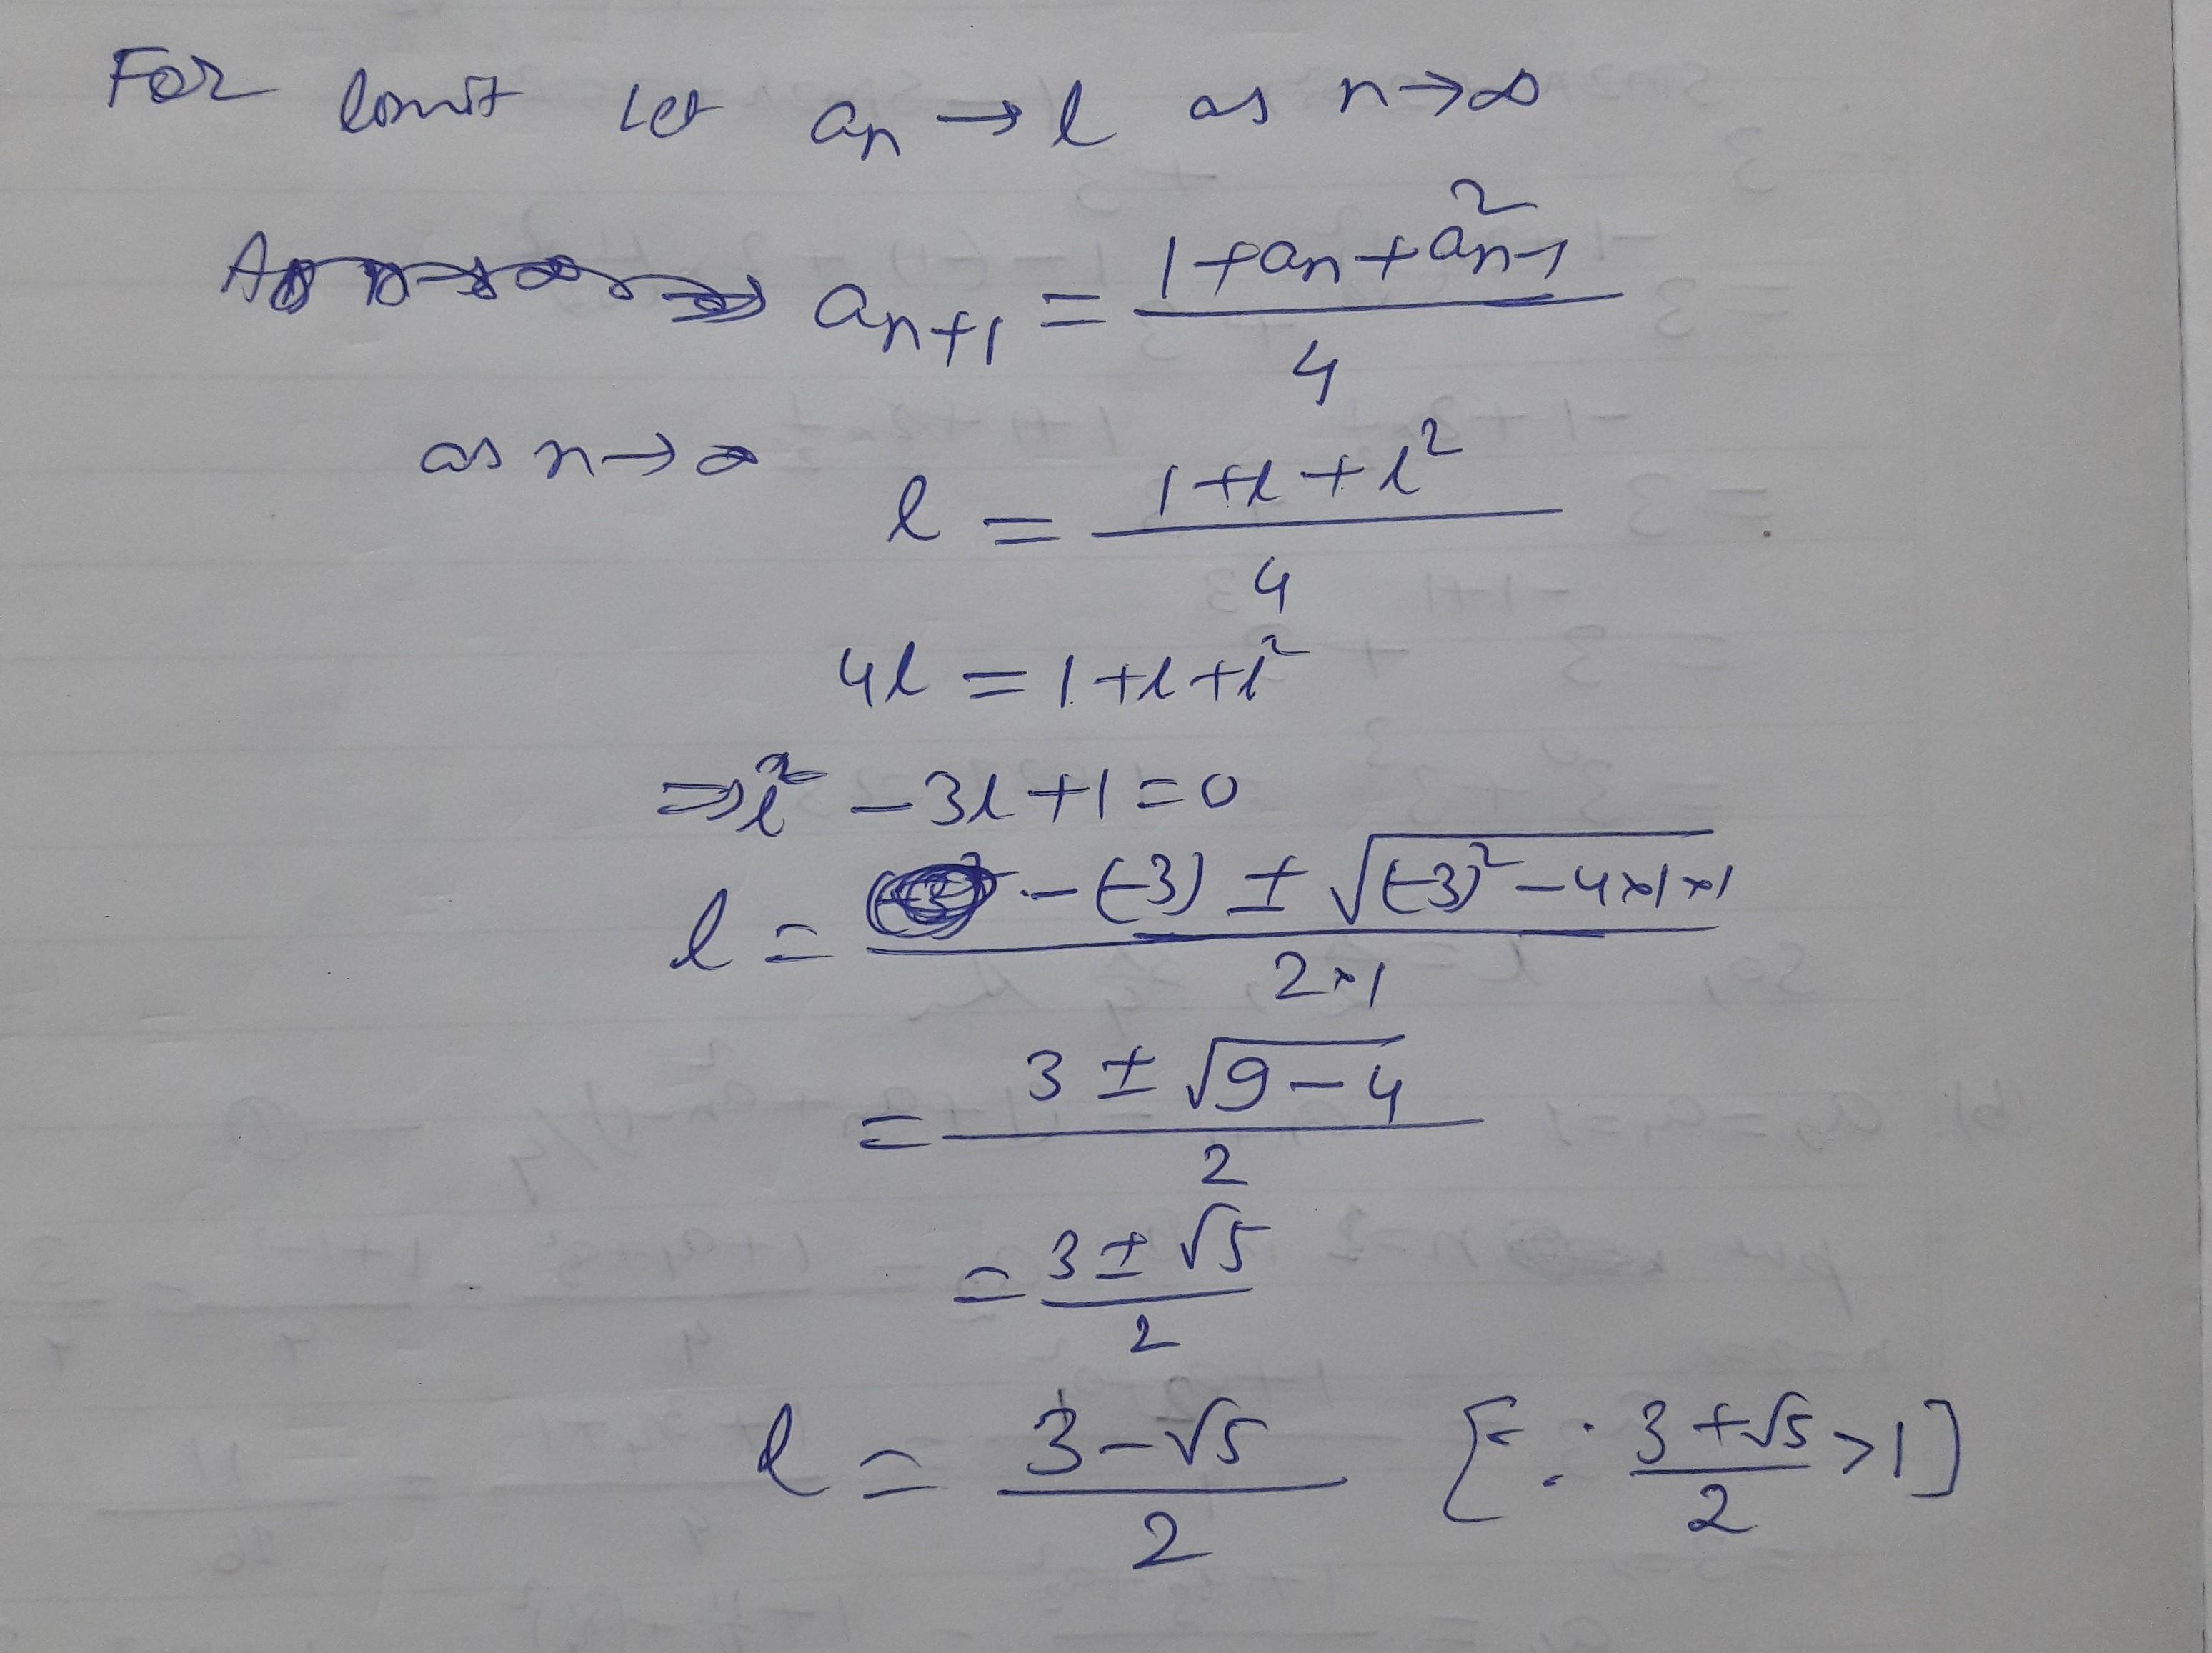 For limit let aₙ → l as n→∞
aₙ₊₁ = (1+aₙ+a²ₙ₋₁)/4
as n→∞ l = (1+l+l²)/4
4l = 1+l+l²
⇒ l² − 3l + 1 = 0
l = (−(−3) ± √((−3)² − 4×1×1))/(2×1)
= (3 ± √(9−4))/2
= (3 ± √5)/2
l = (3−√5)/2 [∵ (3+√5)/2 > 1]